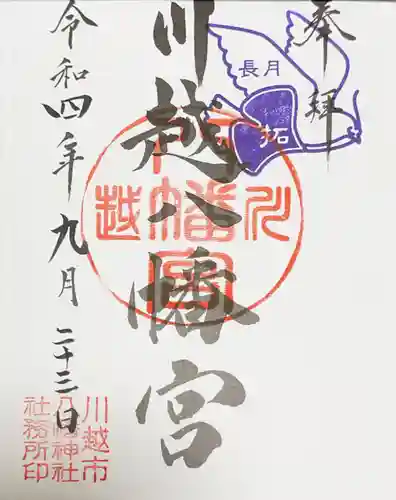 奉拝
長月
拓
川越八幡宮
川越八幡宮
令和四年九月二十三日
川越市
八幡神社
社務所印